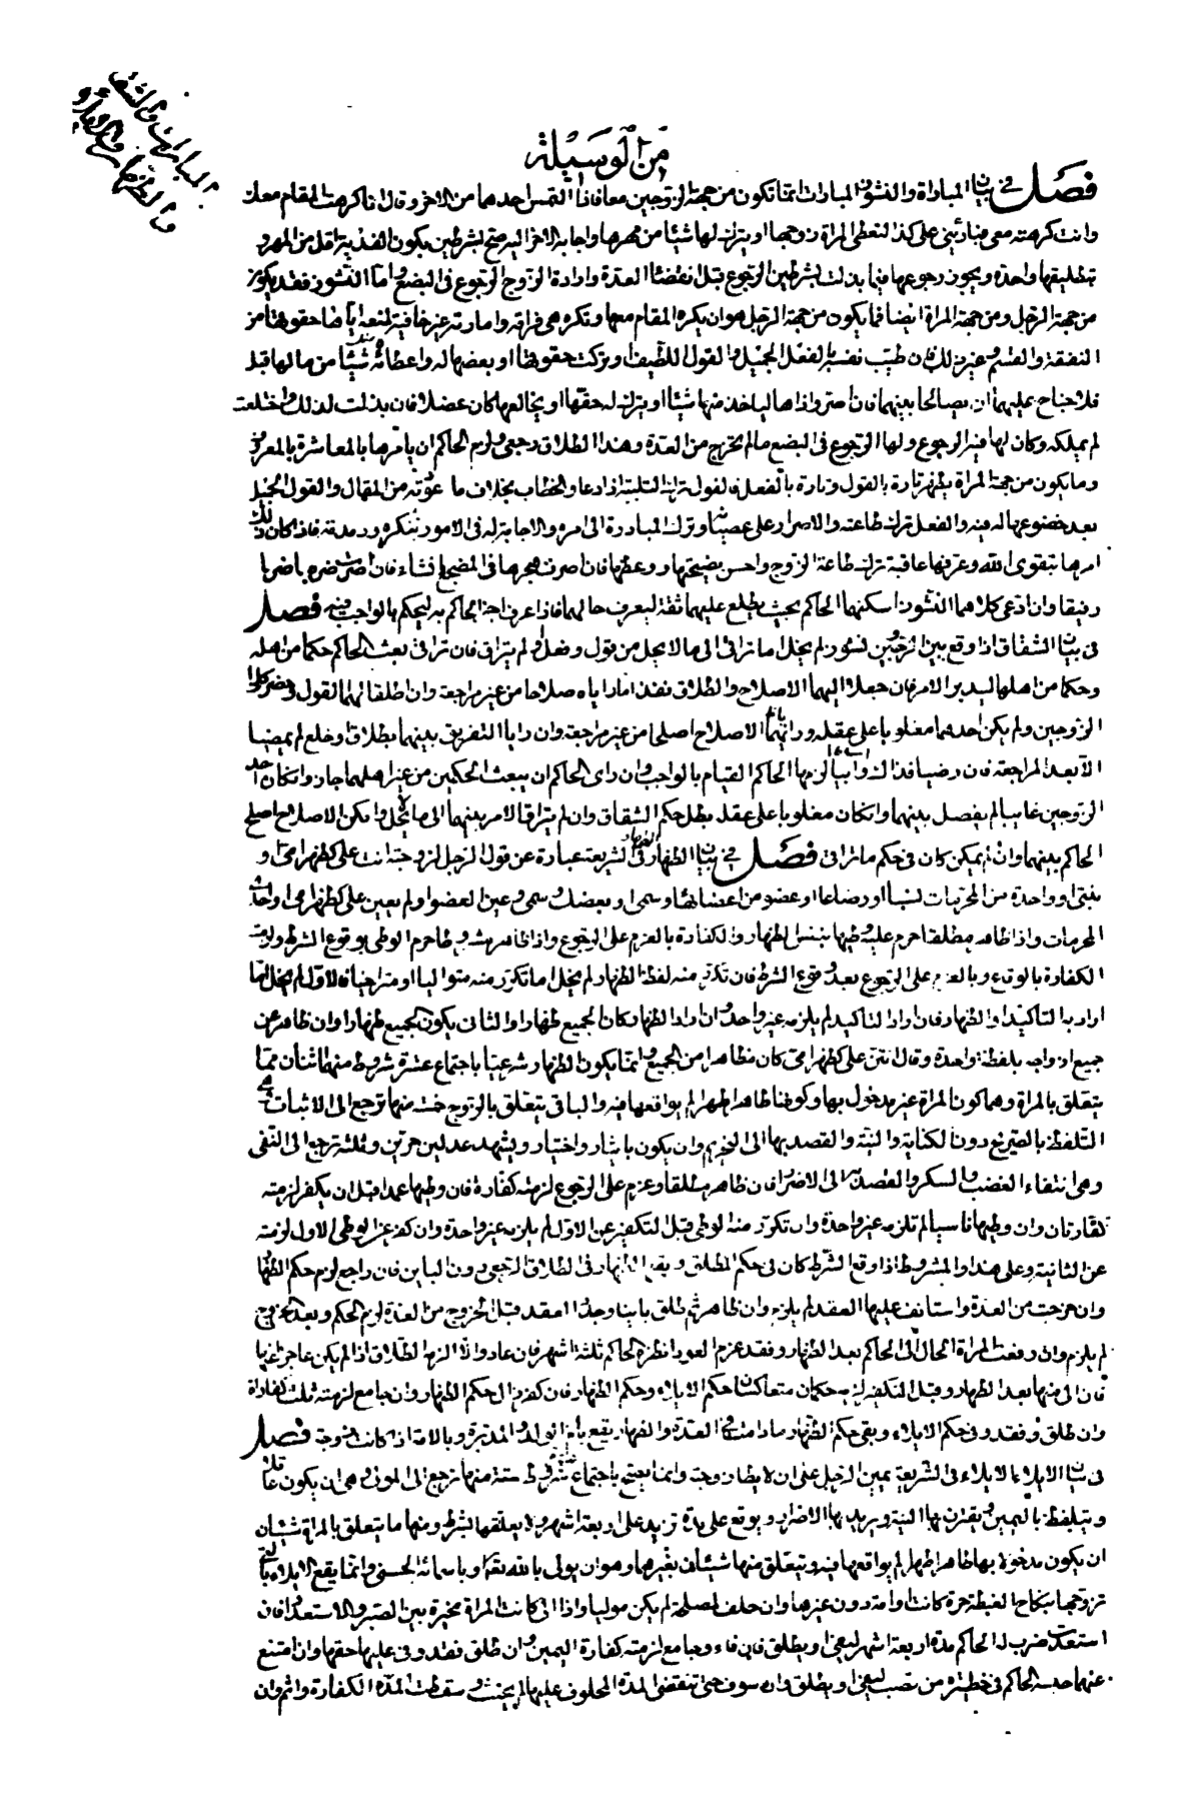 المبارات والشقاق
والظهار والايلاء
من الوسيلة
فصل في بيان المباراة والنشوز المبارات انما تكون من جهة الزوجين معا فاذا التمس احدهما من الاخر وقال انا كرهت المقام معك
وانت كرهته معي فبارئيني على كذا لتعطى المراة زوجها او يترك لها شيئا من مهرها واجابه الاخر اليه صح بشرطين يكون الفدية اقل من المهر و
تطليقها واحدة ويجوز رجوعها فيما بذلت بشرطين الرجوع قبل انقضاء العدة وارادة الزوج الرجوع في البضع واما النشوز فقد يكون
من جهة الرجل ومن جهة المراة ايضا فما يكون من جهة الرجل هو ان يكره المقام معها وتكره هي فراقه وامارته غير خافية لمنعه اياها حقوقها من
النفقة والقسم وغير ذلك فان طيب نفسه بالفعل الجميل والقول اللطيف او تركت حقوقها او بعضها له واعطائه شيئا من مالها قبله
فلا جناح عليهما ان يصالحا بينهما فان اضر واذاها لياخذ منها شيئا او يترك له حقها او يخالعها كان عضلا فان بذلت لذلك واختلعت
لم يملكه وكان لها فيه الرجوع ولها الرجوع في البضع مالم تخرج من العدة وهذا الطلاق رجعي ولزم الحاكم ان يامرها بالمعاشرة بالمعروف
وما يكون من جهة المراة يظهر تارة بالقول وتارة بالفعل فالقول ترك التلبية اذا دعا والخطاب بخلاف ما عودته من المقال والقول الجميل
بعد خضوعها له فيه والفعل ترك طاعته والاصرار على عصيانه وترك المبادرة الى امره والاجابة له في الامور بتنكره ودمدمة فاذا كان ذلك
امرها بتقوى الله وعرفها عاقبة ترك طاعة الزوج واحسن نصيحتها ووعظها فان اصرت هجرها في المضجع ان شاء فان اصرت ضربها ضربا
رفيقا وان ادعى كلاهما النشوز اسكنهما الحاكم بحيث يطلع عليهما ثقة ليعرف حالهما فاذا عرف اخبر الحاكم به ليحكم بالواجب فيه فصل
في بيان الشقاق اذا وقع بين الزوجين نشوز لم يخل اما ترافى الى ما لا يحل من قول وفعل او لم يتراق فان تراقى بعث الحاكم حكما من اهله
وحكما من اهلها ليدبر الامر فان جعلا اليهما الاصلاح والطلاق نفذا ما راياه صلاحا من غير مراجعة وان اطلقا لهما القول وحضر كلا
الزوجين ولم يكن احدهما مغلوبا على عقله ورايا الاصلاح اصلحا من غير مراجعة وان رايا التفريق بينهما بطلاق وخلع لم يمضيا
الا بعد المراجعة فان رضيا فذاك وان ابيا لزمهما الحاكم القيام بالواجب وان راى الحاكم ان يبعث الحكمين من غير اهلهما جاز وان كان احد
الزوجين غايبا لم يفصل بينهما وان كان مغلوبا على عقله بطل حكم الشقاق وان لم يتراق الامر بينهما الى ما لا يحل وامكن الاصلاح اصلح
الحاكم بينهما وان لم يمكن كان في حكم ما تراقى فصل في بيان الظهار الظهار في الشريعة عبارة عن قول الرجل لزوجته انت على كظهر امي او
بنتي او واحدة من المحرمات نسبا او رضاعا او عضو من اعضائها وسمى او بعضك وسمى وعين العضو او لم يعين على كظهر امي او احدى
المحرمات واذا ظاهر مطلقا حرم عليه وطيها بنفس الظهار والكفارة بالعزم على الرجوع واذا ظاهر مشروطا حرم الوطى بوقوع الشرط ولزمت
الكفارة بالوقوع وبالعزم على الرجوع بعد وقوع الشرط فان تكرر منه لفظ الظهار ولم يخل اما تكرر منه متواليا او متراخيا فالاول لم يخل اما
اراد به التاكيد او الظهار فان اراد التاكيد لم يلزمه غير واحد وان اراد الظهار كان الجميع ظهارا والثاني يكون الجميع ظهارا وان ظاهر عن
جميع ازواجه بلفظة واحدة وقال انتن على كظهر امي كان مظاهرا من الجميع وانما يكون الظهار شرعيا باجتماع عشرة شروط منها اثنان مما
يتعلق بالمراة وهما كون المراة غير مدخول بها وكونها طاهرا طهرا لم يواقعها فيه والباقي يتعلق بالزوج خمسة منها ترجع الى الاثبات وهي
التلفظ بالصريح دون الكناية والنية والقصد بها الى التحريم وان يكون بايثار واختيار ويشهد عدلين حرين وثلثة ترجع الى النفى
وهي انتفاء الغضب والسكر والقصد به الى الاضرار فان ظاهر مطلقا وعزم على الرجوع لزمته كفارة فان وطيها عمدا قبل ان يكفر لزمته
كفارتان وان وطيها ناسيا لم تلزمه غير واحدة وان تكرر منه الوطى قبل التكفير عن الاول لم يلزمه غير واحدة وان كفر عن الوطى الاول لزمته
عن الثانية وعلى هذا والمشروط اذا وقع الشرط كان في حكم المطلق ويقع الظهار في الطلاق الرجعي دون الباين فان راجع لزم حكم الظهار
وان خرجت من العدة واستانف عليها العقد لم يلزم وان ظاهر ثم طلق باينا وجدد العقد قبل الخروج من العدة لزم الحكم وبعد الخروج
لم يلزم وان رفعت المراة الحال الى الحاكم بعد الظهار وفقد عزم العود انظره الحاكم ثلثة اشهر فان عاد والا الزمه الطلاق اذا لم يكن عاجزا غريبا
فان الى منها بعد الظهار وقبل التكفير لزمه حكمان متعاكسان حكم الايلاء وحكم الظهار فان كفر زال حكم الظهار وان جامع لزمته ثلث كفارات
وان طلق فقد وفى حكم الايلاء وبقى حكم الظهار مادامت في العدة والظهار يقع بام الولد والمدبرة وبالامة اذا كانت زوجة فصل
في بيان الايلاء الايلاء في الشريعة يمين الرجل على ان لا يطا زوجته وانما يصح باجتماع شروط ستة منها ترجع الى المولى وهي ان يكون عاقلا
ويتلفظ باليمين ويقترن بها النية ويريد بها الاضرار ويوقع على مدة تزيد على اربعة اشهر ولا يعلقها بشرط ومنها ما يتعلق بالمراة شيئان
ان يكون مدخولا بها طاهرا طهرا لم يواقعها فيه ويتعلق منها شيئان بغيرها وهو ان يولى بالله تعالى او باسمائه الحسنى وانما يقع الايلاء بالتي
تزوجها بنكاح الغبطة حرة كانت او امة دون غيرها وان حلف لمصلحة لم يكن موليا واذا الى كانت المراة مخيرة بين الصبر والاستعداء فان
استعدت ضرب له الحاكم مدة اربعة اشهر ليفئ او يطلق فان فاء وجامع لزمته كفارة اليمين وان طلق فقد وفى عليها حقها وان امتنع
عنهما حبسه الحاكم في حظيرة من قصب ليفئ او يطلق وان سوف حتى تنقضى المدة المحلوف عليها لم يحنث وسقطت المدة الكفارة واثم وان